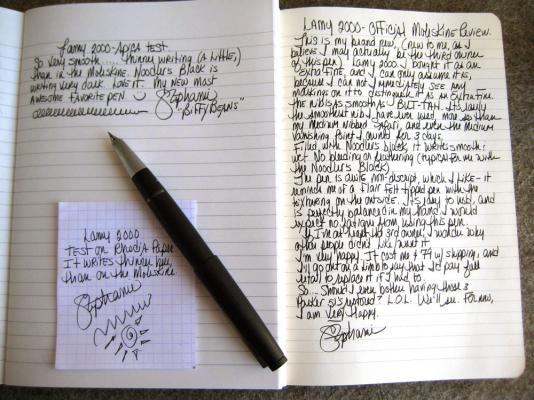 Lamy 2000-Apica test.
So very smooth.... thinner writing (a little,)
than in the Moleskine. Noodler's Black is
writing very dark. Love it. My new most
awesome favorite pen.
Stephanie
"Biffybeans"
Lamy 2000
Test on Rhodia Paper
It writes thinner here
than on the Moleskine.
Stephanie
Lamy 2000- Official Moleskine Review.
This is my brand new, (new to me, as I
believe I may actually be the third owner
of this pen) Lamy 2000. I bought it as an
extra fine, and I can only assume it is,
because I can not immediately see any
markings on it to distinguish it as an extra fine.
The nib is as smooth as BUT-TAH. It's easily
the smoothest nib I have ever used, more so than
my medium nibbed Safari, and even the medium
Vanishing Point I owned for 3 days.
Filled with Noodler's black, it writes smooth:
wet. No bleeding or feathering (typical for me with
the Noodler's Black)
The pen is quite non-descript, which I like- it
reminds me of a Flair felt tipped pen with the
texturing on the outside. It's easy to hold, and
is perfectly balanced in my hand. I would
expect no fatigue from using this pen.
If I'm at least its 3rd owner, I wonder why
other people didn't like/want it.
I'm very happy. It cost me $79 w/ shipping, and
I'll go out on a limb to say that I'd pay full
retail to replace it if I had to.
So... Should I even bother having those 3
Parker 51's restored? L.O.L. We'll see. For now,
I am very happy.
Stephanie